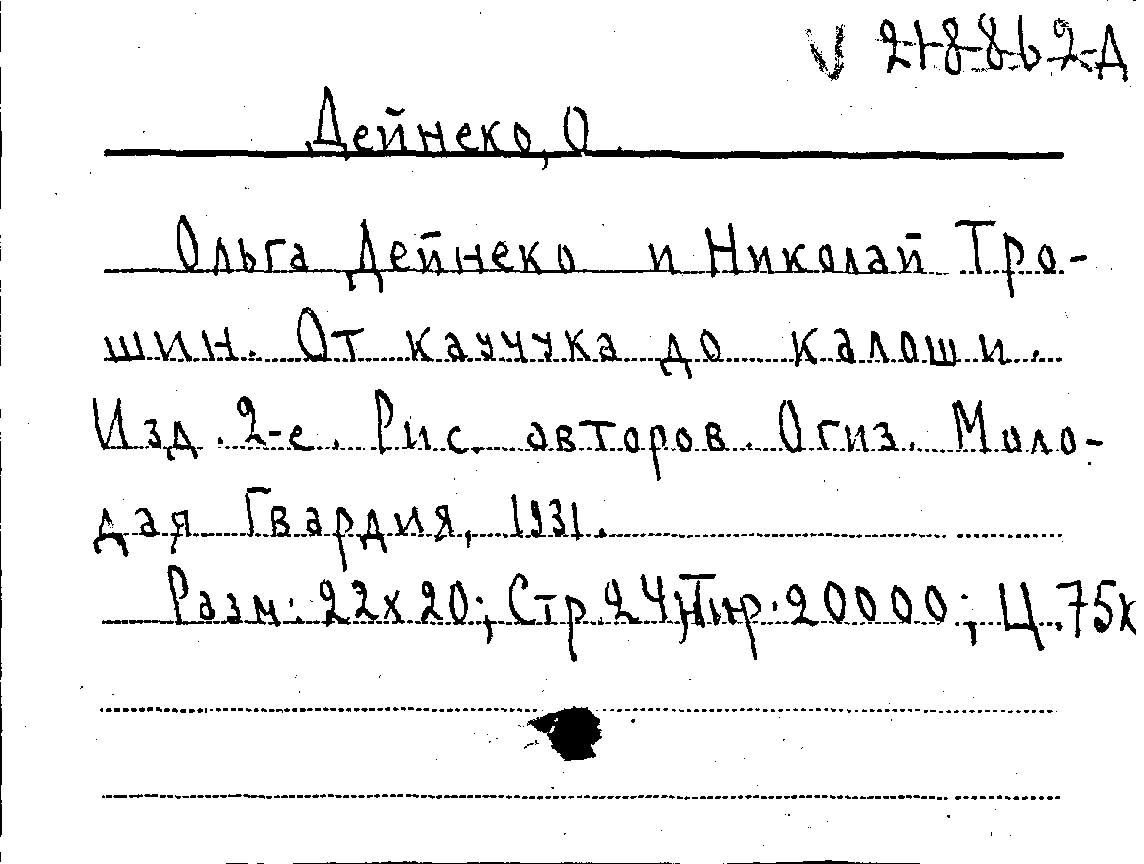 V 218862-А
Дейнеко, О.
Ольга Дейнеко и Николай Тро-
шин. От каучука до калоши.
Изд. 2-е. Рис. авторов. Огиз. Моло-
дая Гвардия, 1931.
Разм: 22х20; Стр. 24; Тир. 20000; Ц. 75к